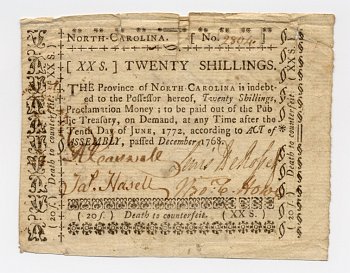 NORTH-CAROLINA. [ No. 2804 ]
[ XX S. ] TWENTY SHILLINGS.
THE Province of NORTH CAROLINA is indebt-
ed to the Possessor hereof, Twenty Shillings,
Proclamation Money; to be paid out of the Pub-
lic Treasury, on Demand, at any Time after the
Tenth Day of JUNE, 1772, according to ACT of
ASSEMBLY, passed December, 1768.
Lewis DeRosset
Jas. Hasell
( 20 s. ) Death to counterfeit. ( XX S. )
( 20 s. ) Death to counterfeit. ( XX S. )
( 20 s. ) Death to counterfeit. ( XX S. )